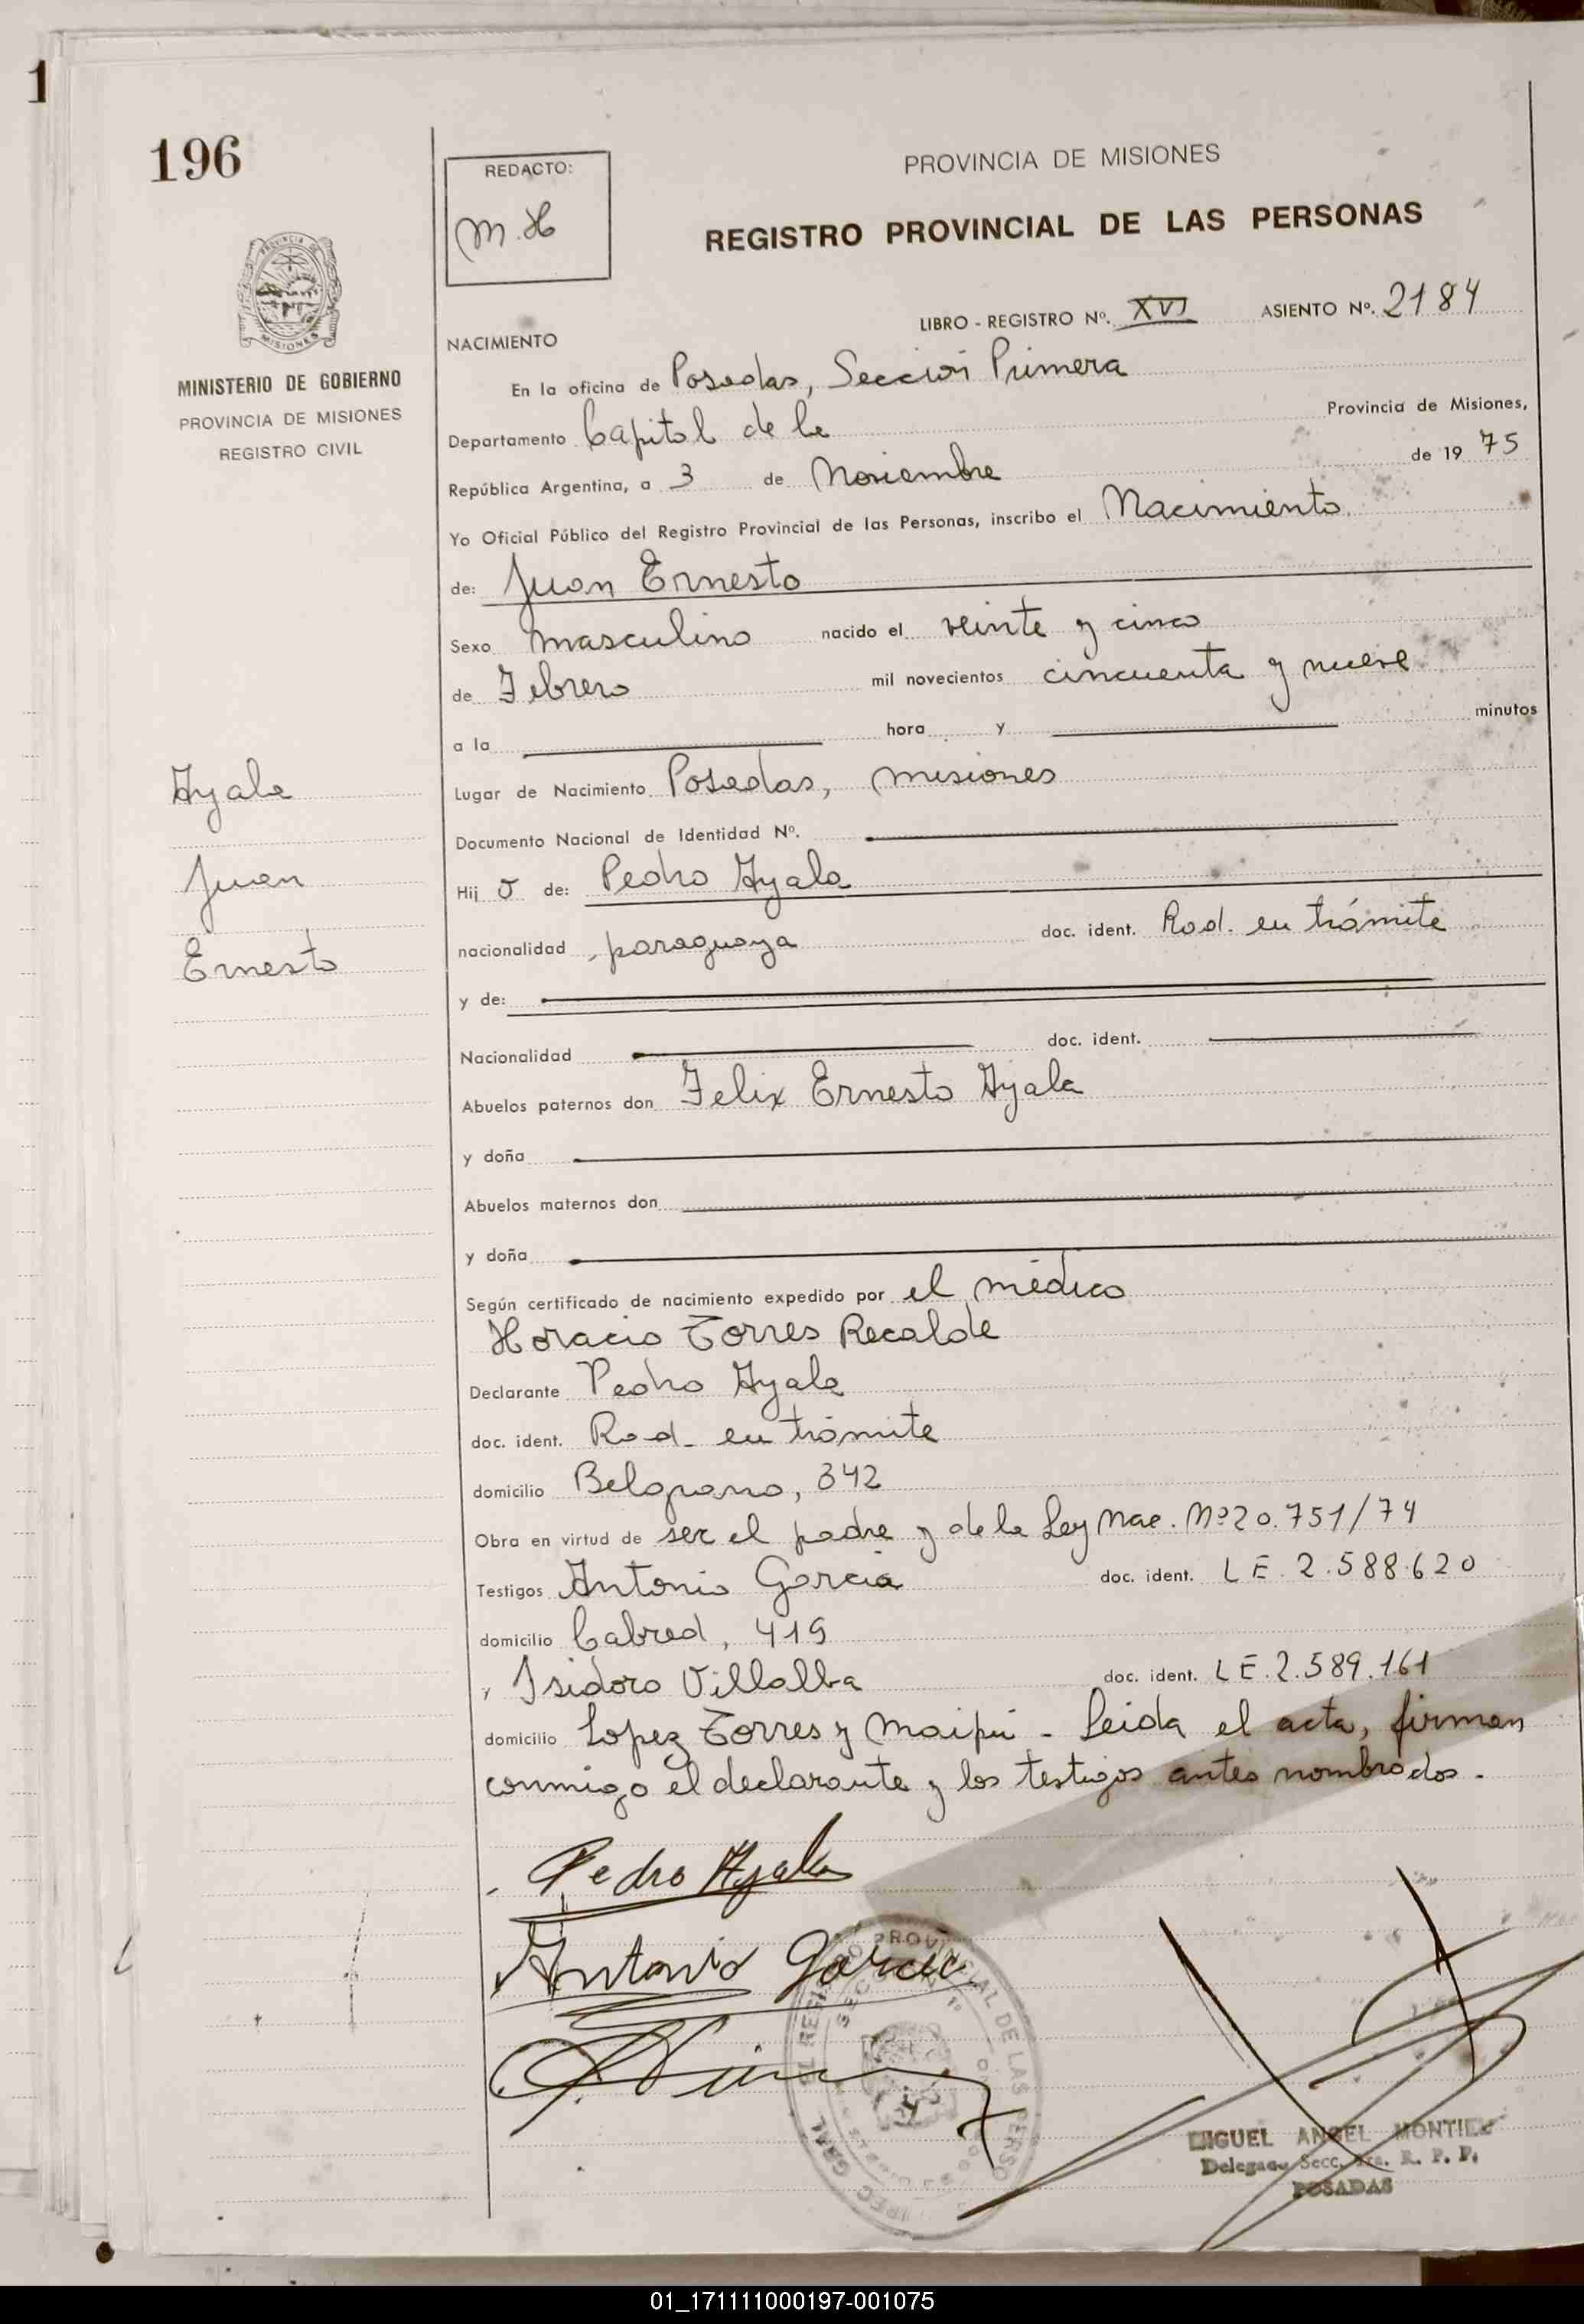 1
196
REDACTO:
M.H
PROVINCIA DE MISIONES
REGISTRO PROVINCIAL DE LAS PERSONAS
PROVINCIA DE
MISIONES
MINISTERIO DE GOBIERNO
PROVINCIA DE MISIONES
REGISTRO CIVIL
LIBRO - REGISTRO Nº. XVI ASIENTO Nº. 2184
NACIMIENTO
En la oficina de Posadas, Sección Primera
Departamento Capital de la Provincia de Misiones,
República Argentina, a 3 de Noviembre de 19 75
Yo Oficial Público del Registro Provincial de las Personas, inscribo el Nacimiento
de: Juan Ernesto
Sexo masculino nacido el veinte y cinco
de Febrero mil novecientos cincuenta y nueve
a la hora y minutos
Lugar de Nacimiento Posadas, Misiones
Documento Nacional de Identidad Nº.
Hij o de: Pedro Ayala
nacionalidad paraguaya doc. ident. Rad. en trámite
y de:
Nacionalidad doc. ident.
Abuelos paternos don Felix Ernesto Ayala
y doña
Abuelos maternos don
y doña
Según certificado de nacimiento expedido por el médico
Horacio Torres Recalde
Declarante Pedro Ayala
doc. ident. Rad. en trámite
domicilio Belgrano, 342
Obra en virtud de ser el padre y de la Ley Nac. Nº 20.751/74
Testigos Antonio Garcia doc. ident. LE. 2.588.620
domicilio Cabred, 419
y Isidoro Villalba doc. ident. LE. 2.589.161
domicilio Lopez Torres y Maipú - Leida el acta, firman
conmigo el declarante y los testigos antes nombrados.
Ayala
Juan
Ernesto
Pedro Ayala
Antonio Garcia
MIGUEL ANGEL MONTIEL
Delegado Secc. 1ra. R. P. P.
POSADAS
01_171111000197-001075